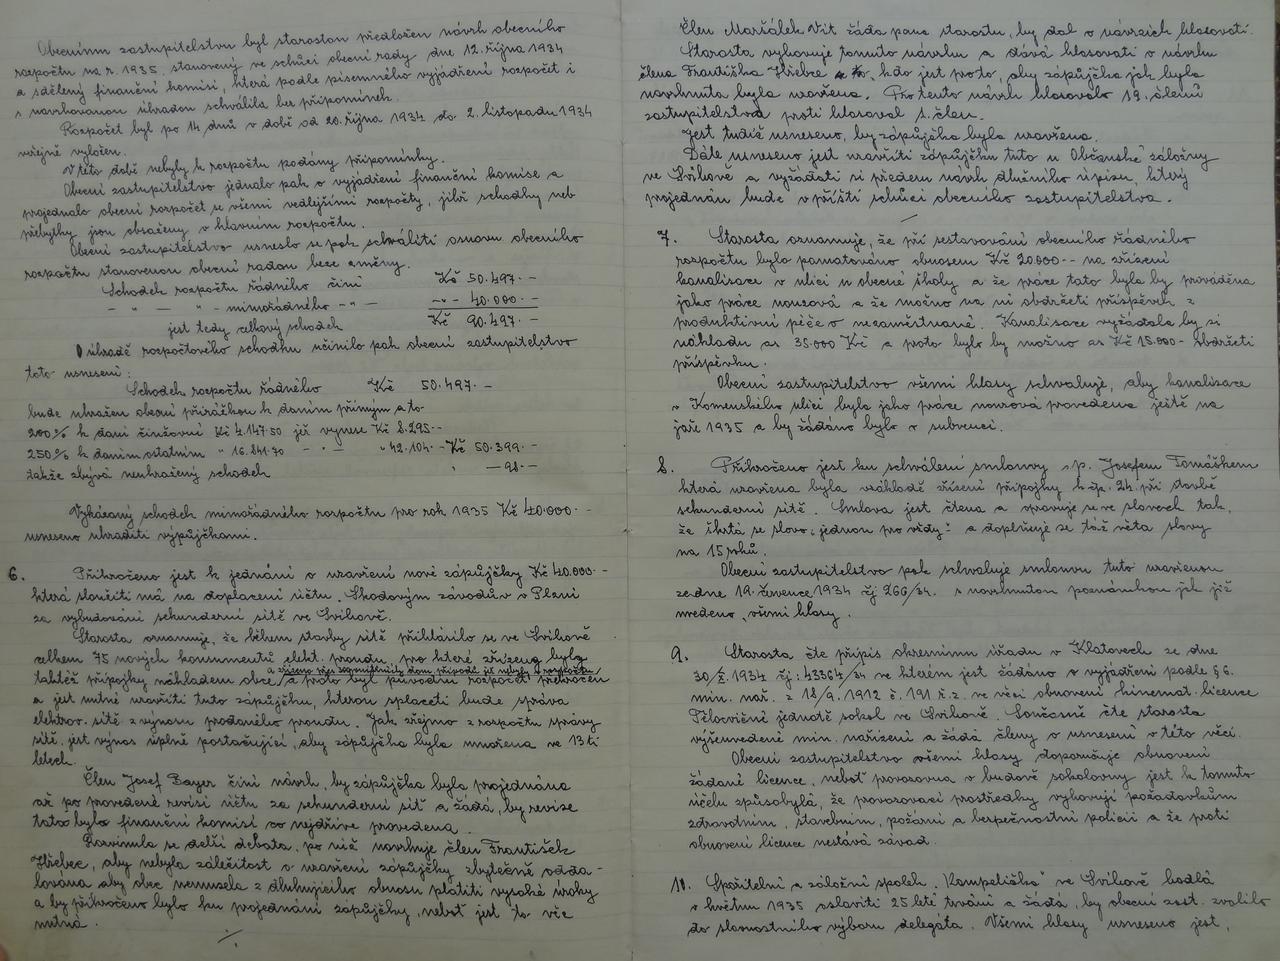 Obecnímu zastupitelstvu byl starostou předložen návrh obecního
rozpočtu na r. 1935, stanovený ve schůzi obecní rady dne 12. října 1934
a sdělený finanční komisi, která podle písemného vyjádření rozpočet i
s navrhovanou úhradou schválila bez připomínek.
Rozpočet byl po 14 dnů v době od 20. října 1934 do 2. listopadu 1934
veřejně vyložen.
V této době nebyly k rozpočtu podány připomínky.
Obecní zastupitelstvo jednalo pak o vyjádření finanční komise a
projednalo obecní rozpočet se všemi vedlejšími rozpočty, jichž schodky neb
přebytky jsou obsaženy v hlavním rozpočtu.
Obecní zastupitelstvo usneslo se pak schváliti osnovu obecního
rozpočtu stanovenou obecní radou beze změny.
Schodek rozpočtu řádného činí Kč 50.497.-
- " - " - mimořádného -"- -"- 40.000.-
jest tedy celkový schodek Kč 90.497.-
O úhradě rozpočtového schodku učinilo pak obecní zastupitelstvo
toto usnesení:
Schodek rozpočtu řádného Kč 50.497.-
bude uhražen obecní přirážkou k daním přímým a to
200% k dani činžovní Kč 4.147.50 jež vynese Kč 8.295.-
250% k daním ostatním " 16.841.70 - " - " 42.104.- Kč 50.399.-
takže zbývá neuhražený schodek " - 98.-
Vykázaný schodek mimořádného rozpočtu pro rok 1935 Kč 40.000.-
usneseno uhraditi výpůjčkami.
6. Přikročeno jest k jednání o uzavření nové zápůjčky Kč 40.000.-
která sloužiti má na doplacení účtu Škodovým závodům v Plzni
za vybudování sekunderní sítě ve Švihově.
Starosta oznamuje, že během stavby sítě přihlásilo se ve Švihově
celkem 75 nových konsumentů elekt. proudu, pro které zřízeny byly
taktéž přípojky nákladem obce, a proto byl původní rozpočet překročen
a jest nutné uzavříti tuto zápůjčku, kterou spláceti bude správa
elektrov. sítě z výnosu prodaného proudu. Jak zřejmo z rozpočtu správy
sítě, jest výnos úplně postačující, aby zápůjčka byla umořena ve 13ti
letech.
Člen Josef Bayer činí návrh, by zápůjčka byla projednána
až po provedené revisi účtu za sekunderní síť a žádá, by revise
tato byla finanční komisí co nejdříve provedena.
Rozvinula se delší debata, po níž navrhuje člen František
Hřebec, aby nebyla záležitost o uzavření zápůjčky zbytečně oddalována
aby obec nemusela z dlužného obnosu platiti vysoké úroky
a by přikročeno bylo ku projednání zápůjčky, neboť jest to věc
nutná.
./.
Člen Mařálek Vít žádá pana starostu, by dal o návrzích hlasovati.
Starosta vyhovuje tomuto návrhu a dává hlasovati o návrhu
člena Františka Hřebce, kdo jest pro to, aby zápůjčka jak byla
navrhnuta byla uzavřena. Pro tento návrh hlasovalo 19. členů
zastupitelstva proti hlasoval 1. člen.
Jest tudíž usneseno, by zápůjčka byla uzavřena.
Dále usneseno jest uzavříti zápůjčku tuto u Občanské záložny
ve Švihově a vyžádati si předem návrh dlužního úpisu, který
projednán bude v příští schůzi obecního zastupitelstva.
7. Starosta oznamuje, že při sestavování obecního řádného
rozpočtu bylo pamatováno obnosem Kč 20.000.- na zřízení
kanalizace v ulici u obecné školy a že práce tato byla by prováděna
jako práce nouzová a že možno na ni obdržeti příspěvek z
produktivní péče o nezaměstnané. Kanalisace vyžádala by si
nákladu as 35.000 Kč a proto bylo by možno as Kč 15.000.- obdržeti
příspěvku.
Obecní zastupitelstvo všemi hlasy schvaluje, aby kanalizace
v Komenského ulici byla jako práce nouzová provedena ještě na
jaře 1935 a by žádáno bylo o subvenci.
8. Přikročeno jest ku schválení smlouvy s p. Josefem Tomáškem
která uzavřena byla vzhledě zřízení přípojky k čp. 24. při stavbě
sekunderní sítě. Smlouva jest čtena a opravuje se ve slovech tak,
že škrtá se slovo: jednou pro vždy: a doplňuje se táž věta slovy
na 15 roků.
Obecní zastupitelstvo pak schvaluje smlouvu tuto uzavřenou
ze dne 19. července 1934 čj 266/34. s navrhnutou poznámkou jak již
uvedeno, všemi hlasy.
9. Starosta čte přípis okresního úřadu v Klatovech ze dne
30/X. 1934 čj: 43364/34 ve kterém jest žádáno o vyjádření podle § 6.
min. nař. z 18/9. 1912 č. 191 ř.z. ve věci obnovení kinemat. licence
Tělocvičné jednotě sokol ve Švihově. Současně čte starosta
výšeuvedené min. nařízení a žádá členy o usnesení v této věci.
Obecní zastupitelstvo všemi hlasy doporučuje obnovení
žádané licence, neboť provozovna v budově sokolovny jest k tomuto
účelu způsobylá, že provozovací prostředky vyhovují požadavkům
zdravotním, stavebním, požární a bezpečnostní policii a že proti
obnovení licence nestává závad.
10. Spořitelní a záložní spolek "Kampelička" ve Švihově hodlá
v květnu 1935 oslaviti 25 leté trvání a žádá, by obecní zast. zvolilo
do slavnostního výboru delegáta. Všemi hlasy usneseno jest,